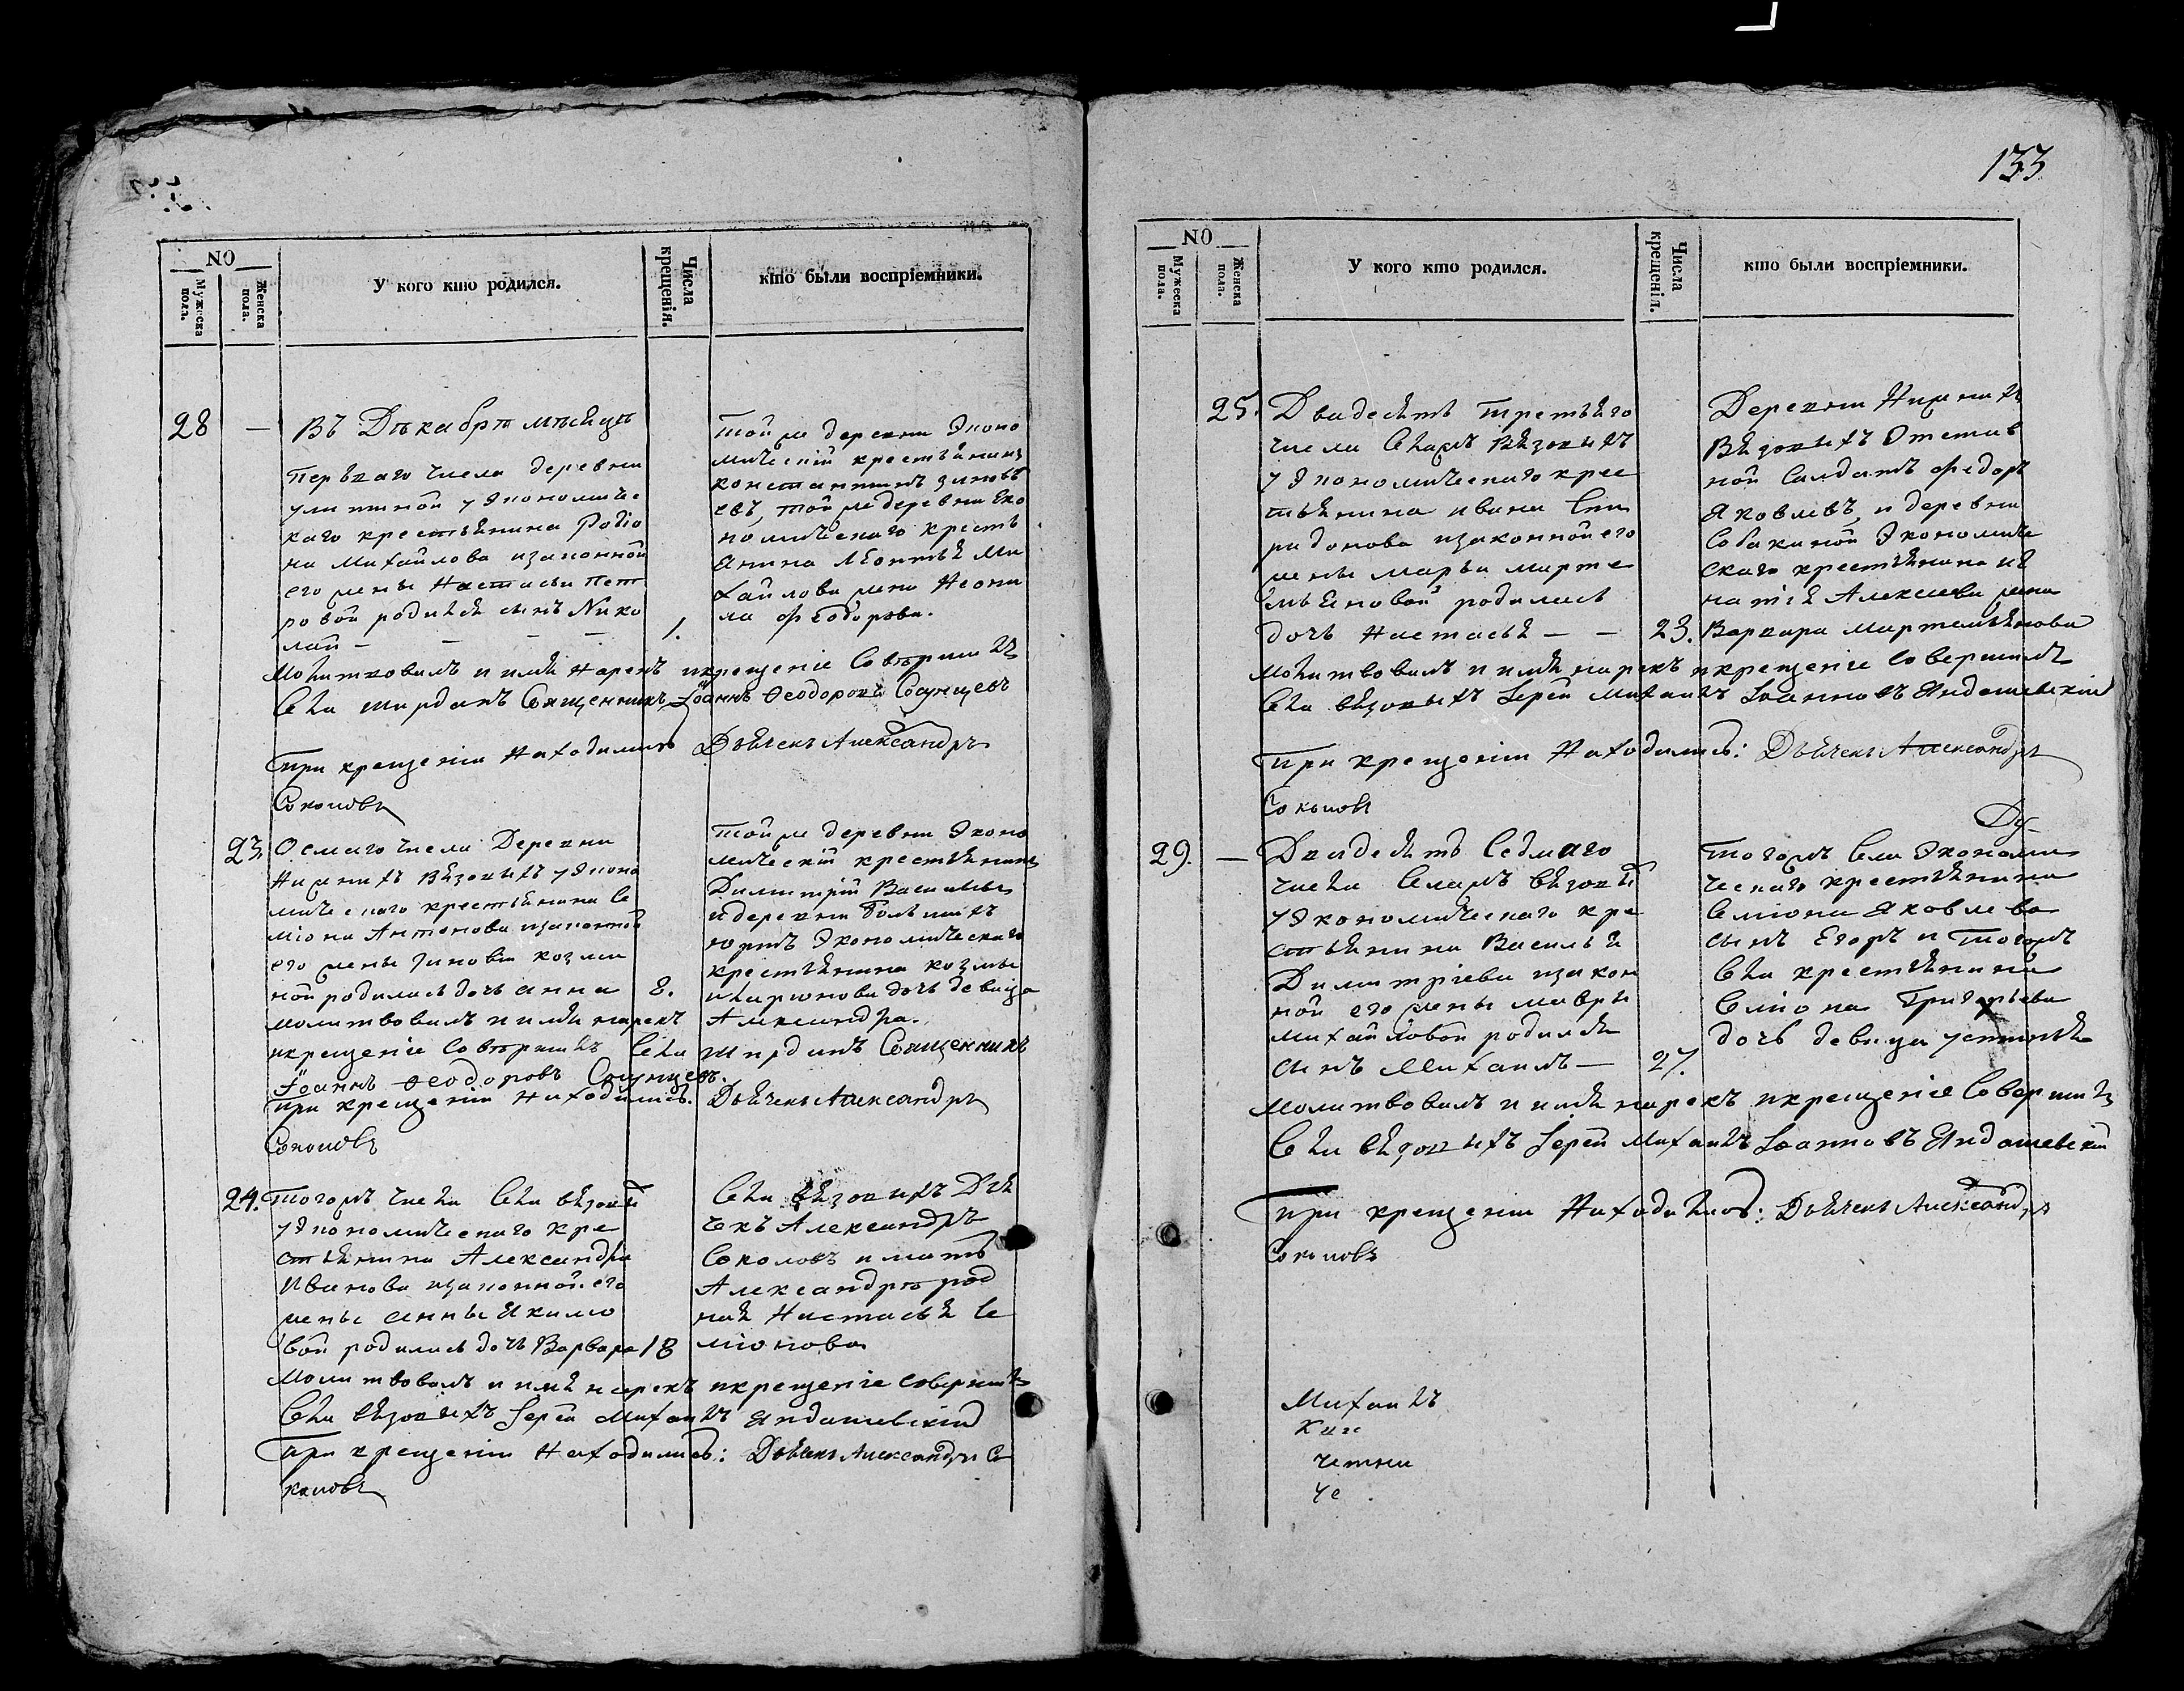 133
NO
Мужеска пола.
Женска пола.
У кого кто родился.
Числа крещенія.
кто были воспріемники.
28 —
Въ Дѣкабрѣ мѣсяцѣ
перьваго числа деревни
у Экономиче
каго крестьянина Родіо
на Михайлова изаконной
его жены Настасьи Пет
ровой родился сынъ Нико
лай — — — — 1.
Той же деревни Эконо
мическій крестьянинъ
константинъ зиновь
евъ, той же деревни Эко
номическаго кресть
янина Леонтья Ми
хайлова жена Неони
ла Феодорова.
Молитвовалъ и имя нарекъ икрещеніе Совѣршилъ
Села ширданъ Священникъ Іоаннъ Ѳеодоровъ Солнцевъ
При крещеніи Находились Дьячекъ Александръ
Соколовъ
23.
Осмаго числа Деревни
Нижнихъ Вязовыхъ уЭконо
мическаго крестьянина Се
міона Антонова изаконной
его жены Зиновіи козми
ной родилась дочь анна 8.
Той же деревни Эконо
мическій крестьянинъ
Димитрій Васильевъ
идеревни Большихъ
юртъ Экономическаго
крестьянина козмы
иларионова дочь девица
Александра.
молитвовалъ и имя нарекъ
икрещеніе Совѣршилъ Села ширданъ Священникъ
Іоаннъ Ѳеодоровъ Солнцевъ.
При крещеніи Находились. Дьячекъ Александръ
Соколовъ
24.
Тогожъ числа Села вязовыхъ
уЭкономическаго кре
стьянина Александра
Иванова изаконной его
жены анны Якимо
вой родилась дочь Варвара 18
Села Вязовыхъ Дья
чекъ Александръ
Соколовъ и мать
Александра род
ная Настасья Се
міонова
Молитвовалъ и имя нарекъ икрещеніе совершилъ
Села вязовыхъ Іерей Михаилъ Яндашевскій
При крещеніи Находились: Дьячекъ Александръ Со
коловъ
NO
Мужеска пола.
Женска пола.
У кого кто родился.
Числа крещенія.
кто были воспріемники.
25.
Двадесять третьяго
числа Села Вязовыхъ
уЭкономическаго крес
тьянина ивана Спи
ридонова изаконной его
жены марьи марте
мьяновой родилась
дочь Настасья — — 23.
Деревни Нижнихъ
Вязовыхъ Отстав
ной Салдатъ Федоръ
Яковлевъ, и деревни
Собакиной Экономиче
скаго крестьянина иг
натія Алексеева жена
Варвара Мартемьянова
Молитвовалъ и имя нарекъ икрещеніе Совершилъ
Села вязовыхъ Іерей Михаилъ Іоанновъ Яндашевскій
При крещеніи Находились: Дьячекъ Александръ
Соколовъ
29. —
Двадесять Седмаго
числа Села вязовыхъ
уЭкономическаго кре
стьянина Василья
Димитріева изакон
ной его жены мавры
михайловой родился
сынъ Михаилъ — 27.
Тогожъ Села Экономи
ческаго крестьянина
Семіона Яковлева
сынъ Егоръ и Тогожъ
Села крестьянина
Семіона Григорьева
дочь девица устинья
молитвовалъ и имя нарекъ икрещеніе Совершилъ
Села вязовыхъ Іерей Михаилъ Іоанновъ Яндашевскій
При крещеніи Находились: Дьячекъ Александръ
Соколовъ
Михаилъ